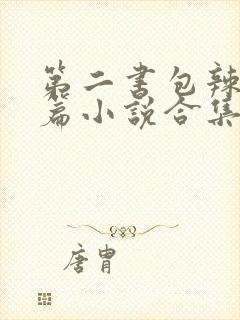 第二书包辣
篇小说合集
唐胄